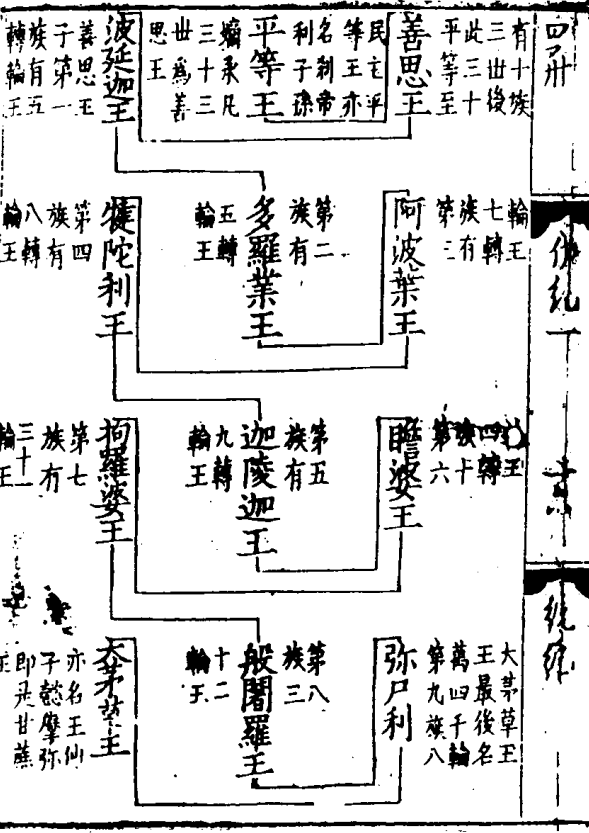 有十族
三世後
此三十
平等至
善思王
民主平
等王亦
名刹帝
利子孫
平等王
嫡承凡
三十三
世為善
思王
波延迦王
善思王
子第一
族有五
轉輪王
佛紀一
輪王
七轉
族有
第三
阿波葉王
第二
族有
多羅業王
五轉
輪王
犍陀利王
第四
族有
八轉
輪王
輪王
四轉
族十
第六
瞻婆王
第五
族有
迦陵迦王
九轉
輪王
拘羅婆王
第七
族有
三十一
輪王
大茅草王
王最後名
萬四千輪
第九族八
弥尸利
第八
族三
般闍羅王
十二
輪王
大茅草王
亦名王仙
子懿摩弥
即是甘蔗
王